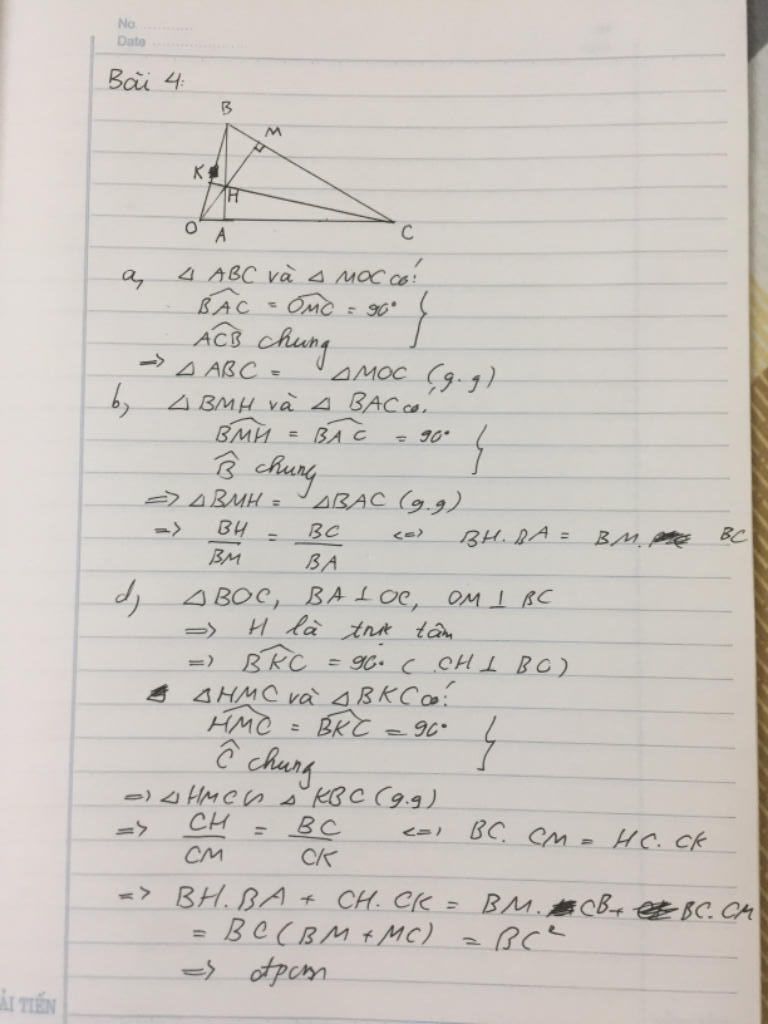 No. ............
Date .......................
Bài 4:
B
M
K
H
O
A
C
a, △ ABC và △ MOC có:
BAC = OMC = 90° }
ACB chung
=> △ ABC = △MOC (g.g)
b, △ BMH và △ BAC có:
BMH = BAC = 90° }
B̂ chung
=> △BMH = △BAC (g.g)
=> BH/BM = BC/BA <=> BH.BA = BM. BC
d, △BOC, BA ⊥ OC, OM ⊥ BC
=> H là trực tâm
=> BKC = 90° ( CH ⊥ BO)
△HMC và △BKC có:
HMC = BKC = 90° }
Ĉ chung
=> △HMC ∽ △ KBC (g.g)
=> CH/CM = BC/CK <=> BC. CM = HC. CK
=> BH.BA + CH.CK = BM. CB + BC.CM
= BC(BM + MC) = BC²
=> đpcm
ẢI TIẾN